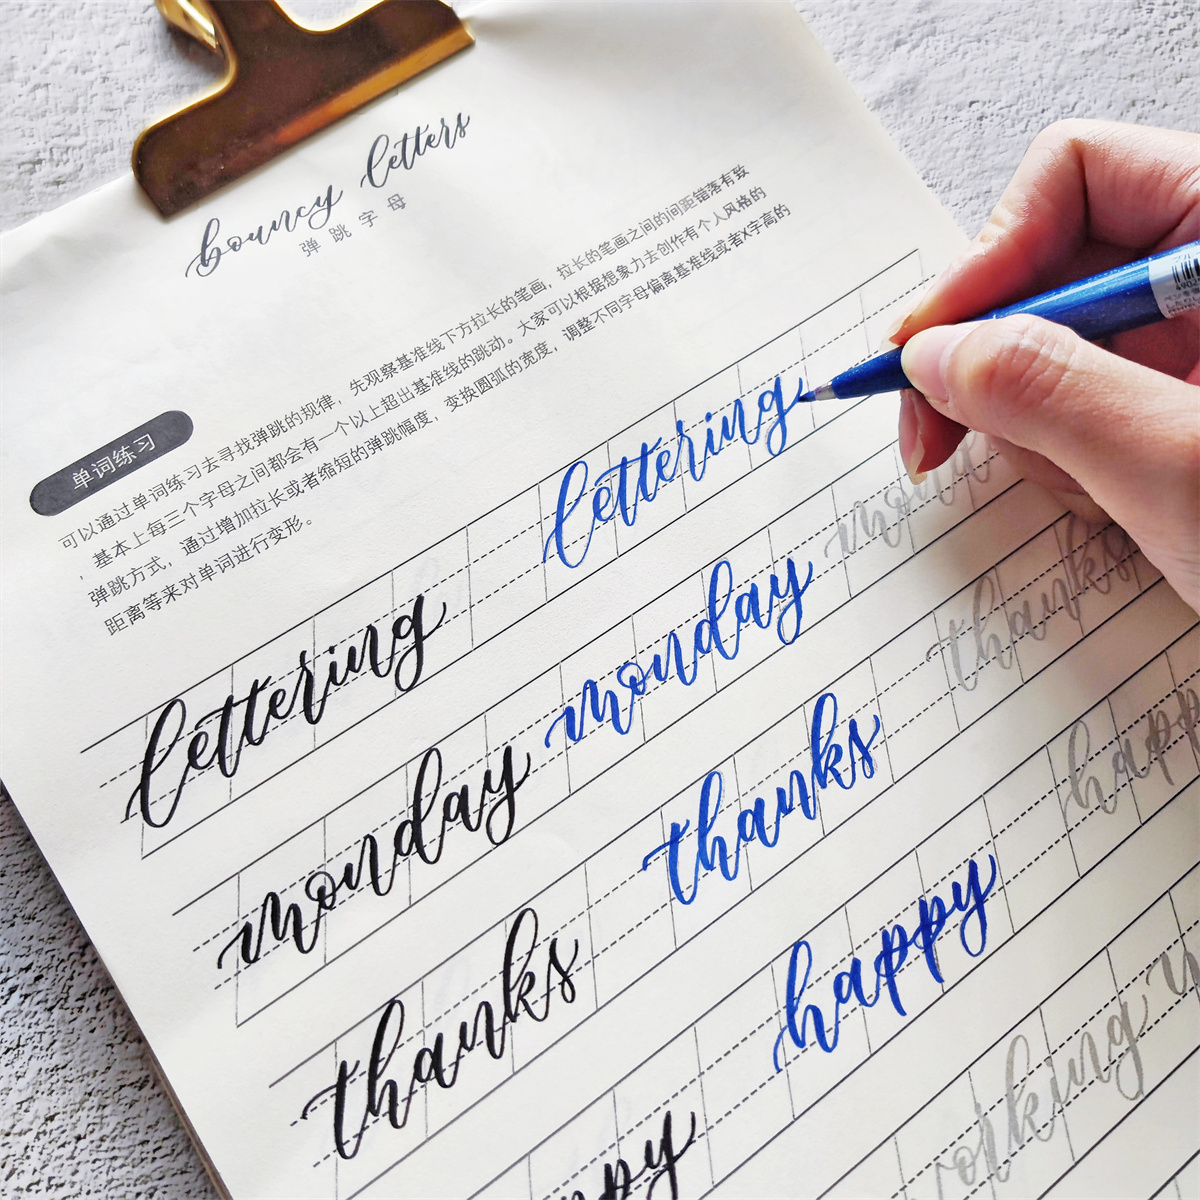 bouncy letters
弹跳字母
单词练习
可以通过单词练习去寻找弹跳的规律，先观察基准线下方拉长的笔画，拉长的笔画之间的间距错落有致
，基本上每三个字母之间都会有一个以上超出基准线的跳动。大家可以根据想象力去创作有个人风格的
弹跳方式，通过增加拉长或者缩短的弹跳幅度，变换圆弧的宽度，调整不同字母偏离基准线或者X字高的
距离等来对单词进行变形。
lettering lettering
monday monday mond
thanks thanks thanks
happy happ
working